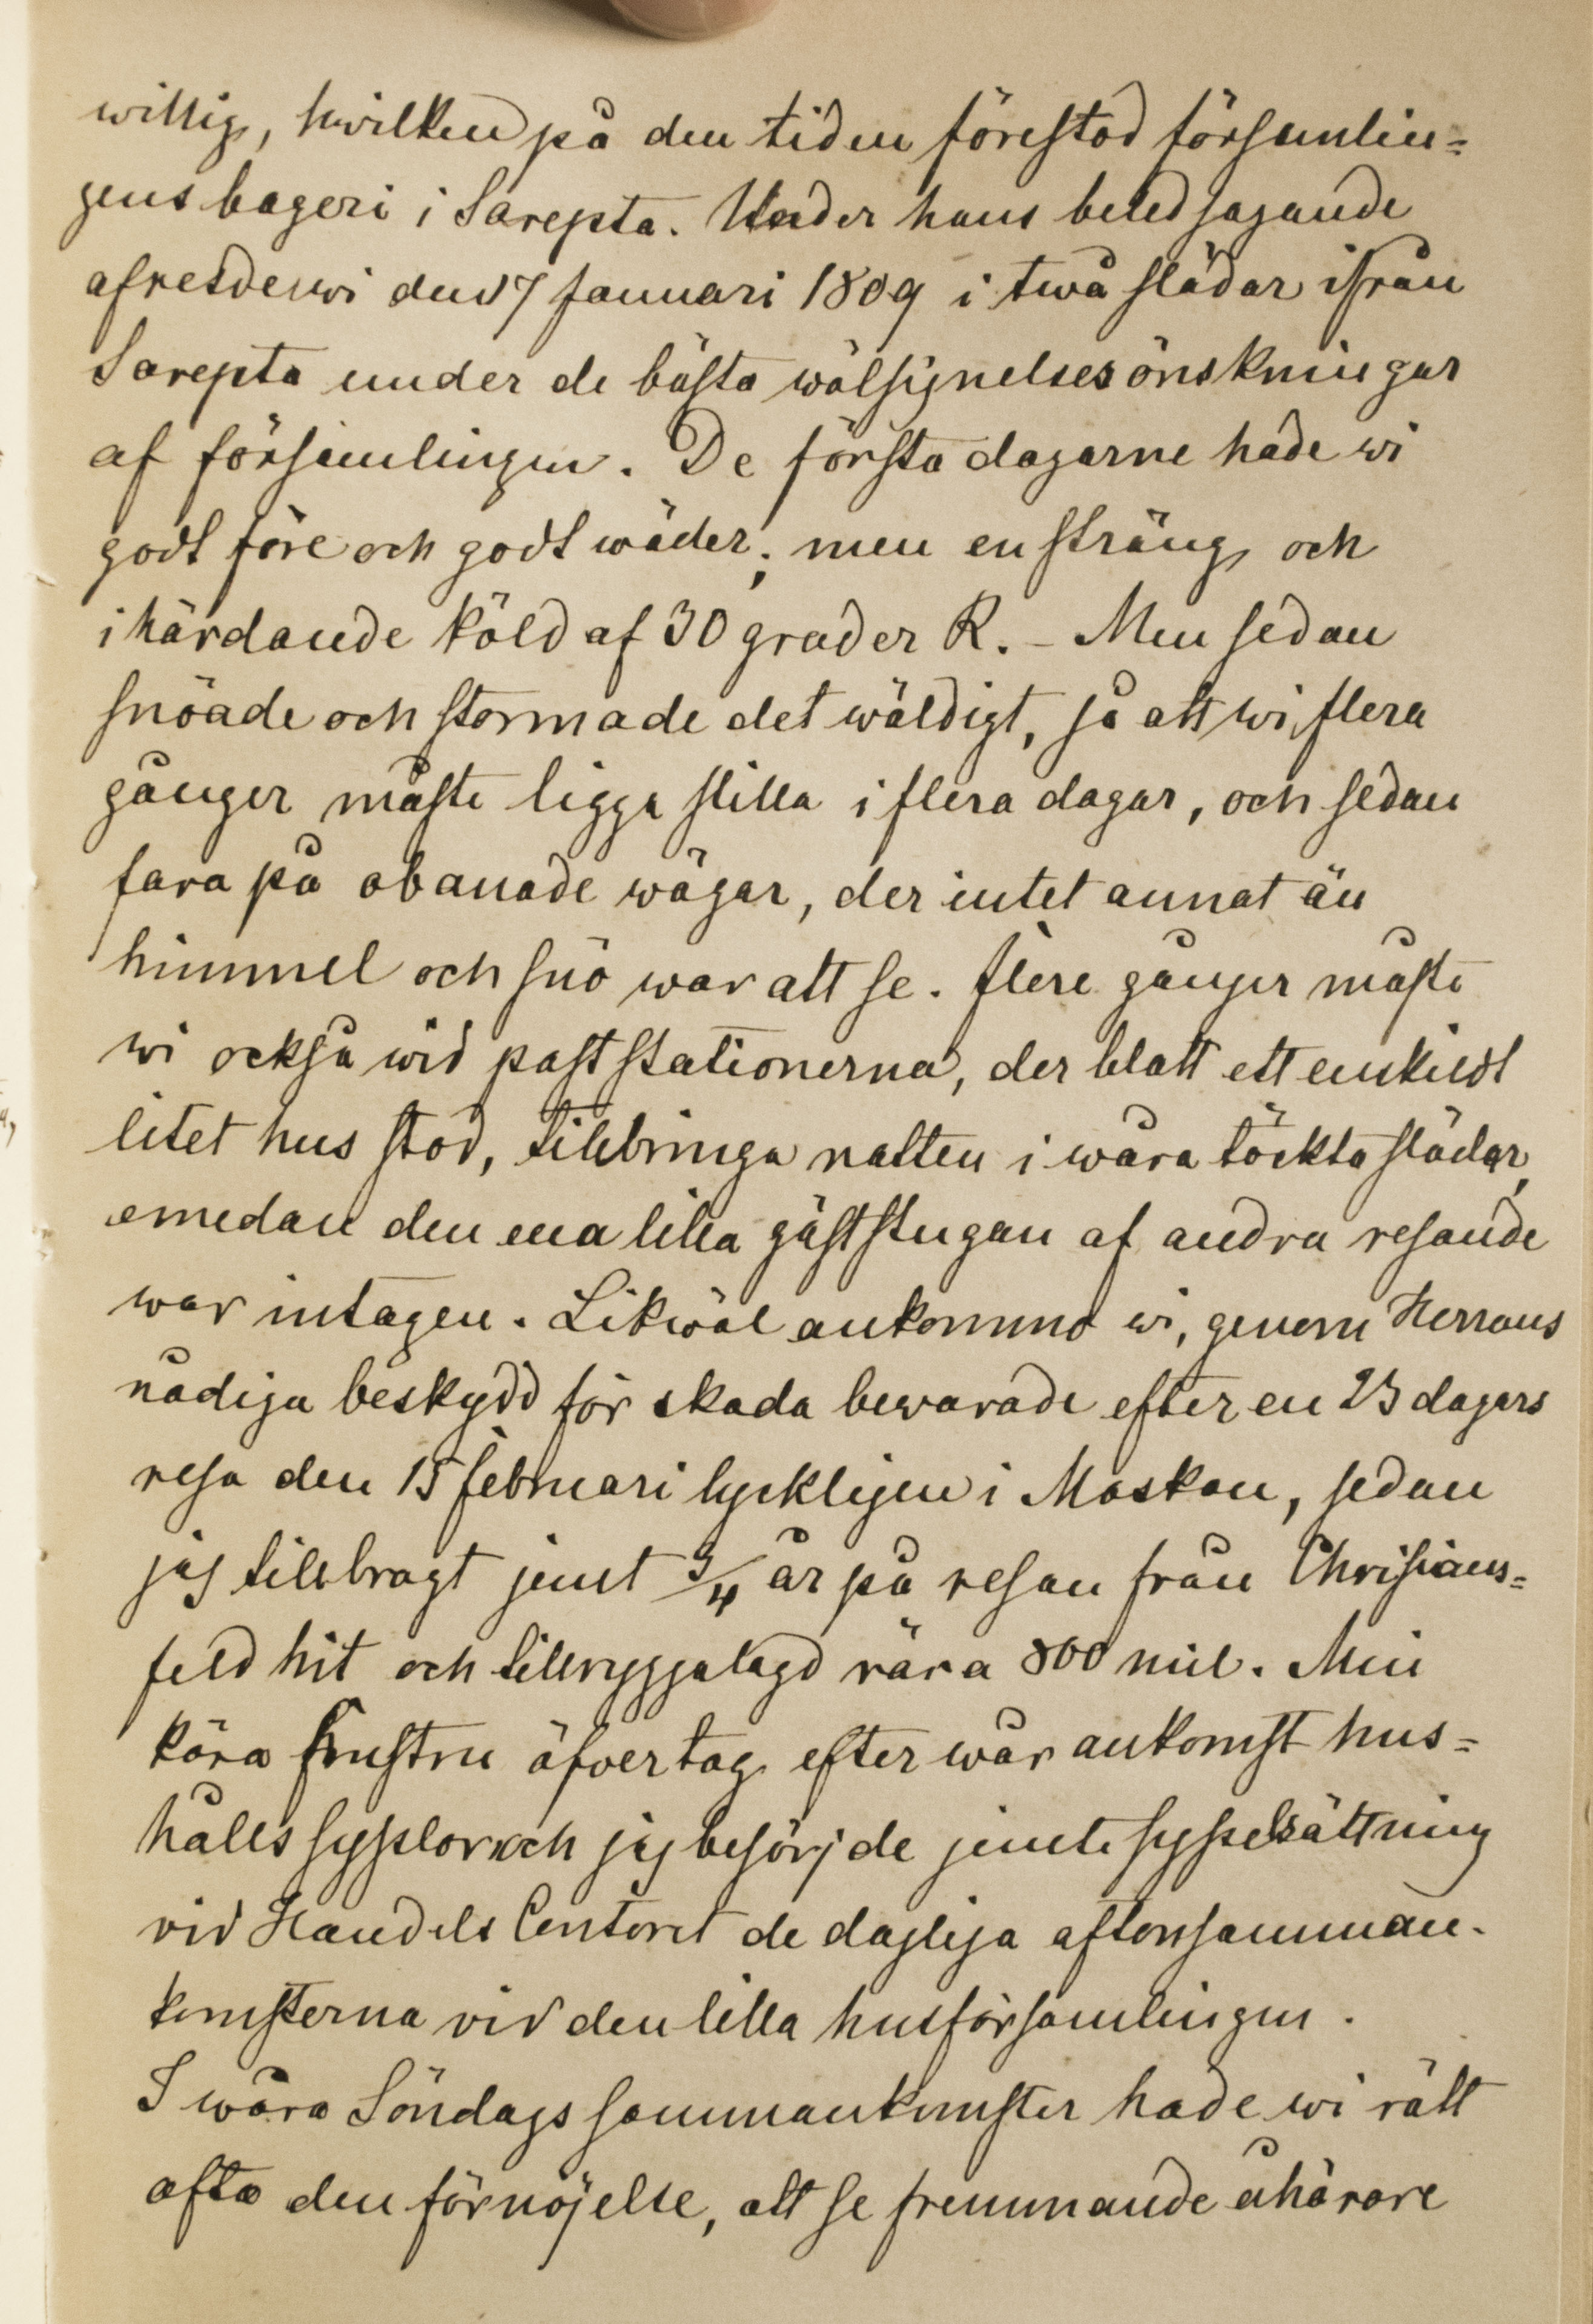 willig, hwilken på den tiden förestod församlin=
gens bageri i Sarepta. Under hans beledsagande
afreste wi den 17 Januari 1809 i twå slädar ifrån
Sarepta under de bästa wälsignelsesönskningar
af församlingen. De första dagarne hade wi
godt före och godt wäder; men en sträng och
ihärdande köld af 30 grader R. – Men sedan
snöade och stormade det wäldigt, så att wi flera
gånger måste ligga stilla i flera dagar, och sedan
fara på obanade wägar, der intet annat än
himmel och snö war att se. Flere gånger måste
wi också wid poststationerna, der blott ett enskildt
litet hus stod, tillbringa natten i wåra täckta slädar,
emedan den ena lilla gäststugan af andra resande
war intagen. Likwäl ankommo wi, genom Herrans
nådiga beskydd för skada bewarade efter en 23 dagars
resa den 15 februari lyckligen i Moskau, sedan
jag tillbragt jemt 3/4 år på resan från Chrisians=
feld hit och tillryggalagd nära 800 mil. Min
kära hustru öfvertog efter wår ankomst hus=
hålls sysslor och jag besörjde jemte sysselsättning
vid Handels Contoret de dagliga aftonsamman-
komsterna vid den lilla husförsamlingen.
I wåra Söndags sammankomster hade wi rätt
ofta den förnöjelse, att se fremmande åhörare